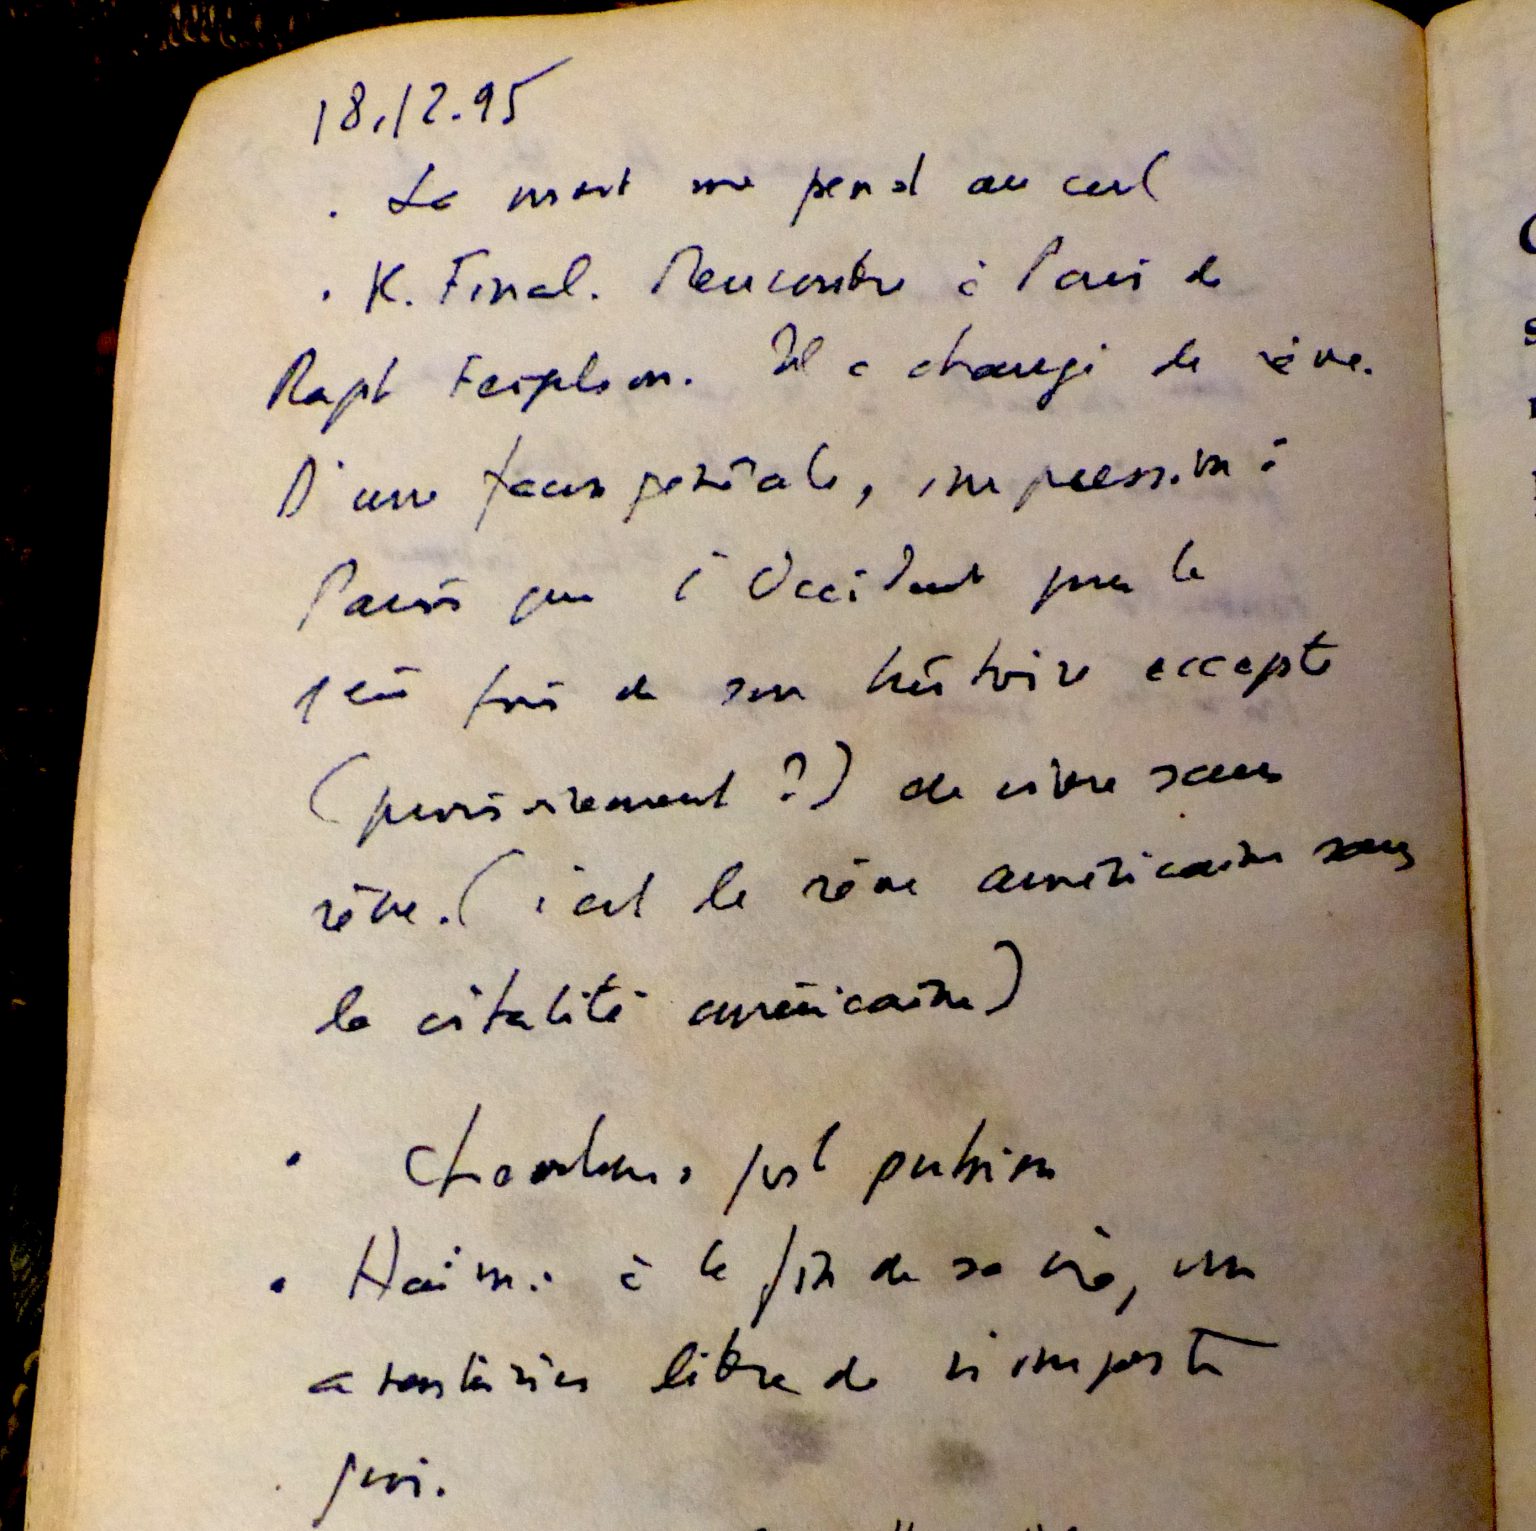 18.12.95
. La mort me pend au cul
. K. Final. Rencontre à Paris de
Il a changé de rêve.
D'une façon générale, impression à
Paris que l'Occident pour la
1ère fois de son histoire accepte
(provisoirement ?) de vivre sans
rêve. (c'est le rêve américain sans
la vitalité américaine)
.
. Haïm : à la fin de sa vie, un
libre de n'importe
quoi.